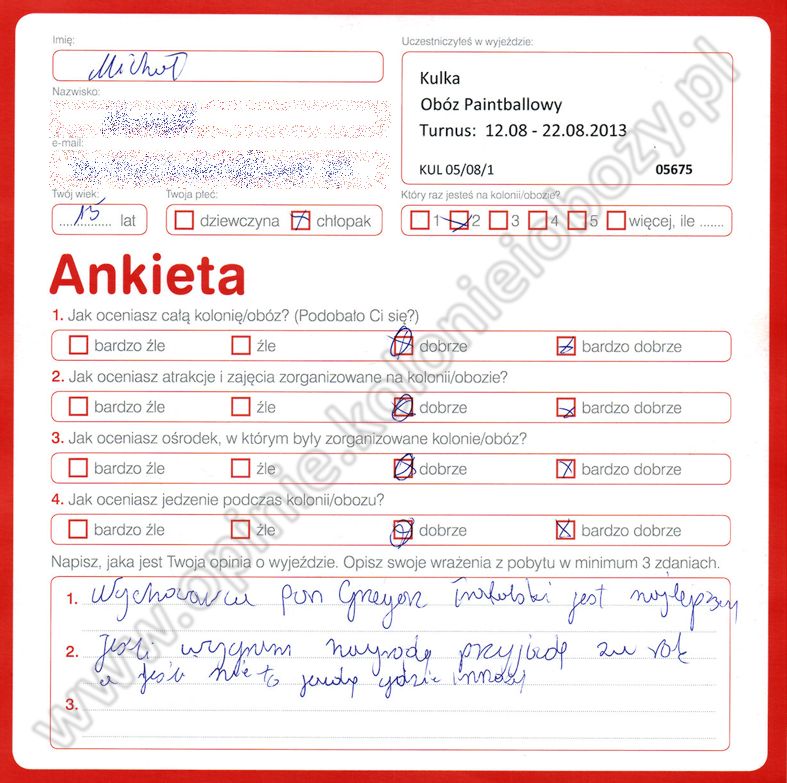 Imię:
Michał
Uczestniczyłeś w wyjeździe:
Kulka
Obóz Paintballowy
Turnus: 12.08 - 22.08.2013
KUL 05/08/1 05675
Nazwisko:
e-mail:
Twój wiek:
15 lat
Twoja płeć:
dziewczyna chłopak
Który raz jesteś na kolonii/obozie?
1 2 3 4 5 więcej, ile .......
Ankieta
1. Jak oceniasz całą kolonię/obóz? (Podobało Ci się?)
bardzo źle źle dobrze bardzo dobrze
2. Jak oceniasz atrakcje i zajęcia zorganizowane na kolonii/obozie?
bardzo źle źle dobrze bardzo dobrze
3. Jak oceniasz ośrodek, w którym były zorganizowane kolonie/obóz?
bardzo źle źle dobrze bardzo dobrze
4. Jak oceniasz jedzenie podczas kolonii/obozu?
bardzo źle źle dobrze bardzo dobrze
Napisz, jaka jest Twoja opinia o wyjeździe. Opisz swoje wrażenia z pobytu w minimum 3 zdaniach.
1. Wychowawca pan Grzegorz jest najlepszy
2. Jeśli wygram nagrodę przyjadę za rok
a jeśli nie to jadę gdzie inndziej
3.
www.opinie.kolonieiobozy.pl